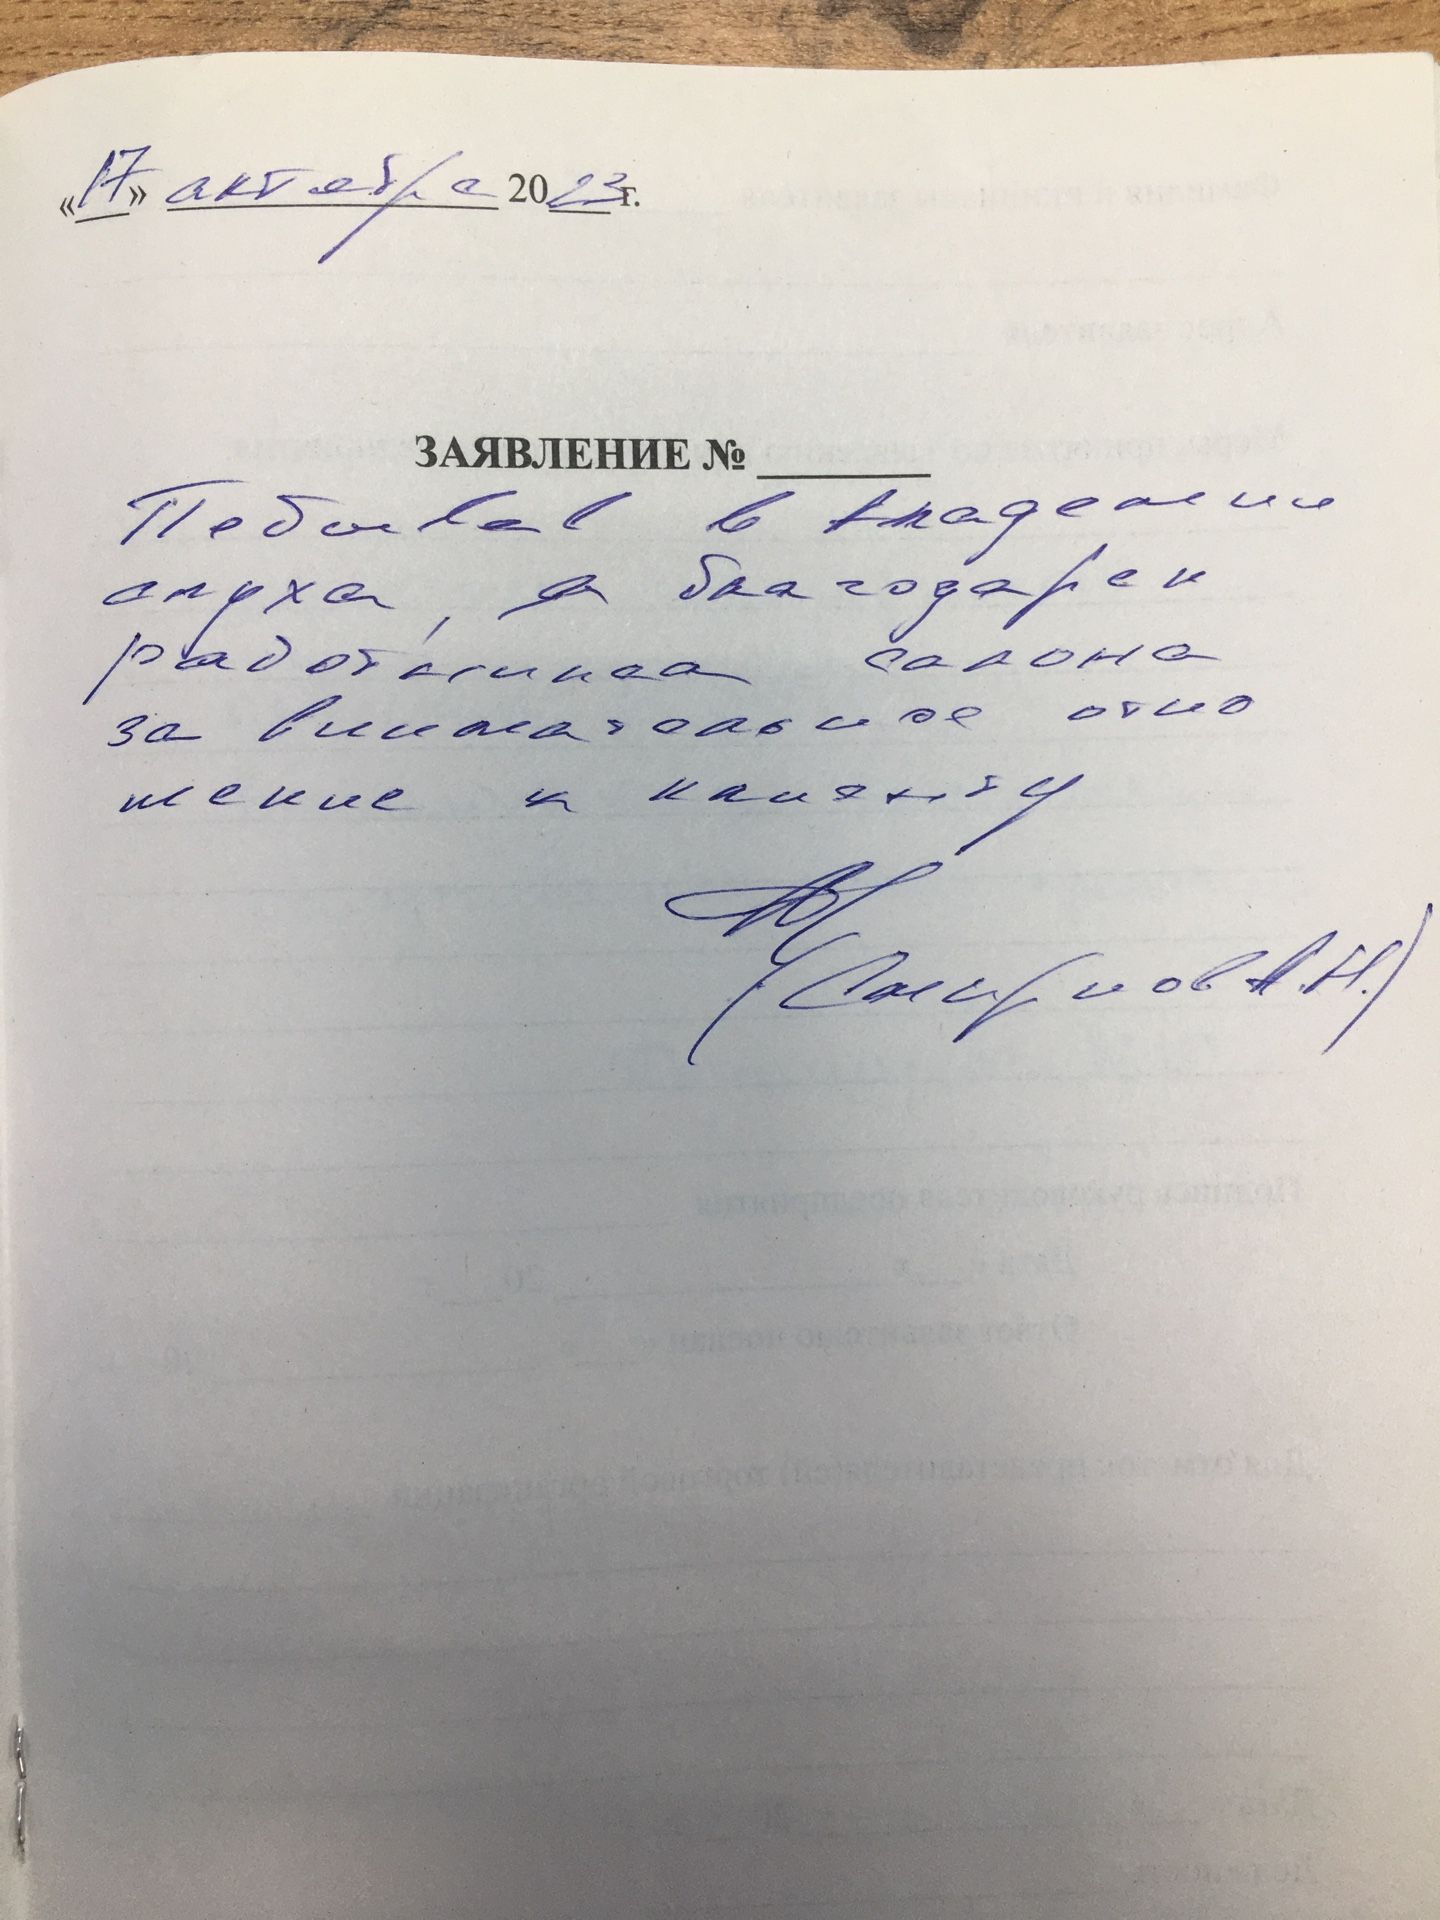 «17» октября 2023 г.
ЗАЯВЛЕНИЕ №
Побывав в Академии
слуха, я благодарен
работникам салона
за внимательное отно
шение к клиенту
(Смирнов А.Н.)